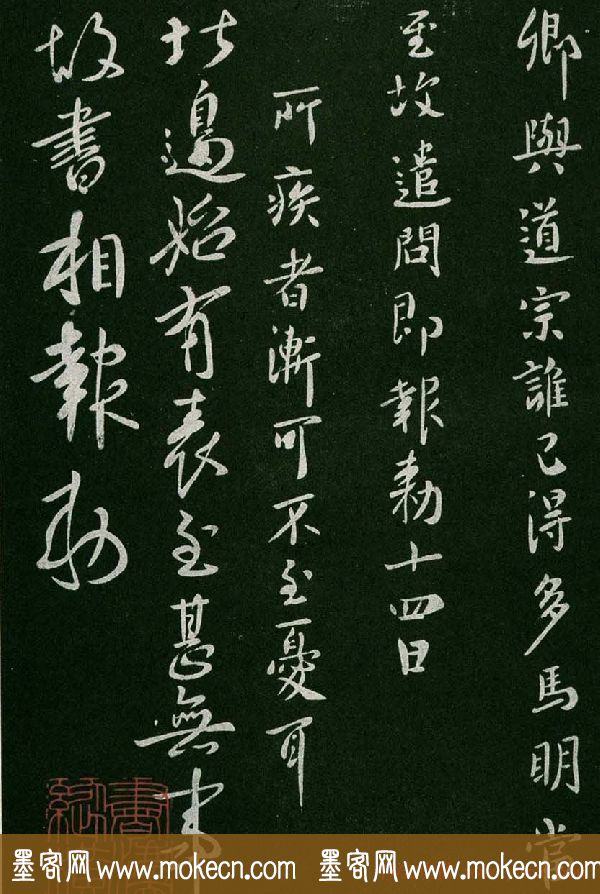 卿與道宗誰已得多馬明當
至故遣問即報勅十四日
所疾者漸可不至憂耳
北邊始有表至甚無
故書相報勅
墨客网 www.mokecn.com 墨客网 www.mokecn.com